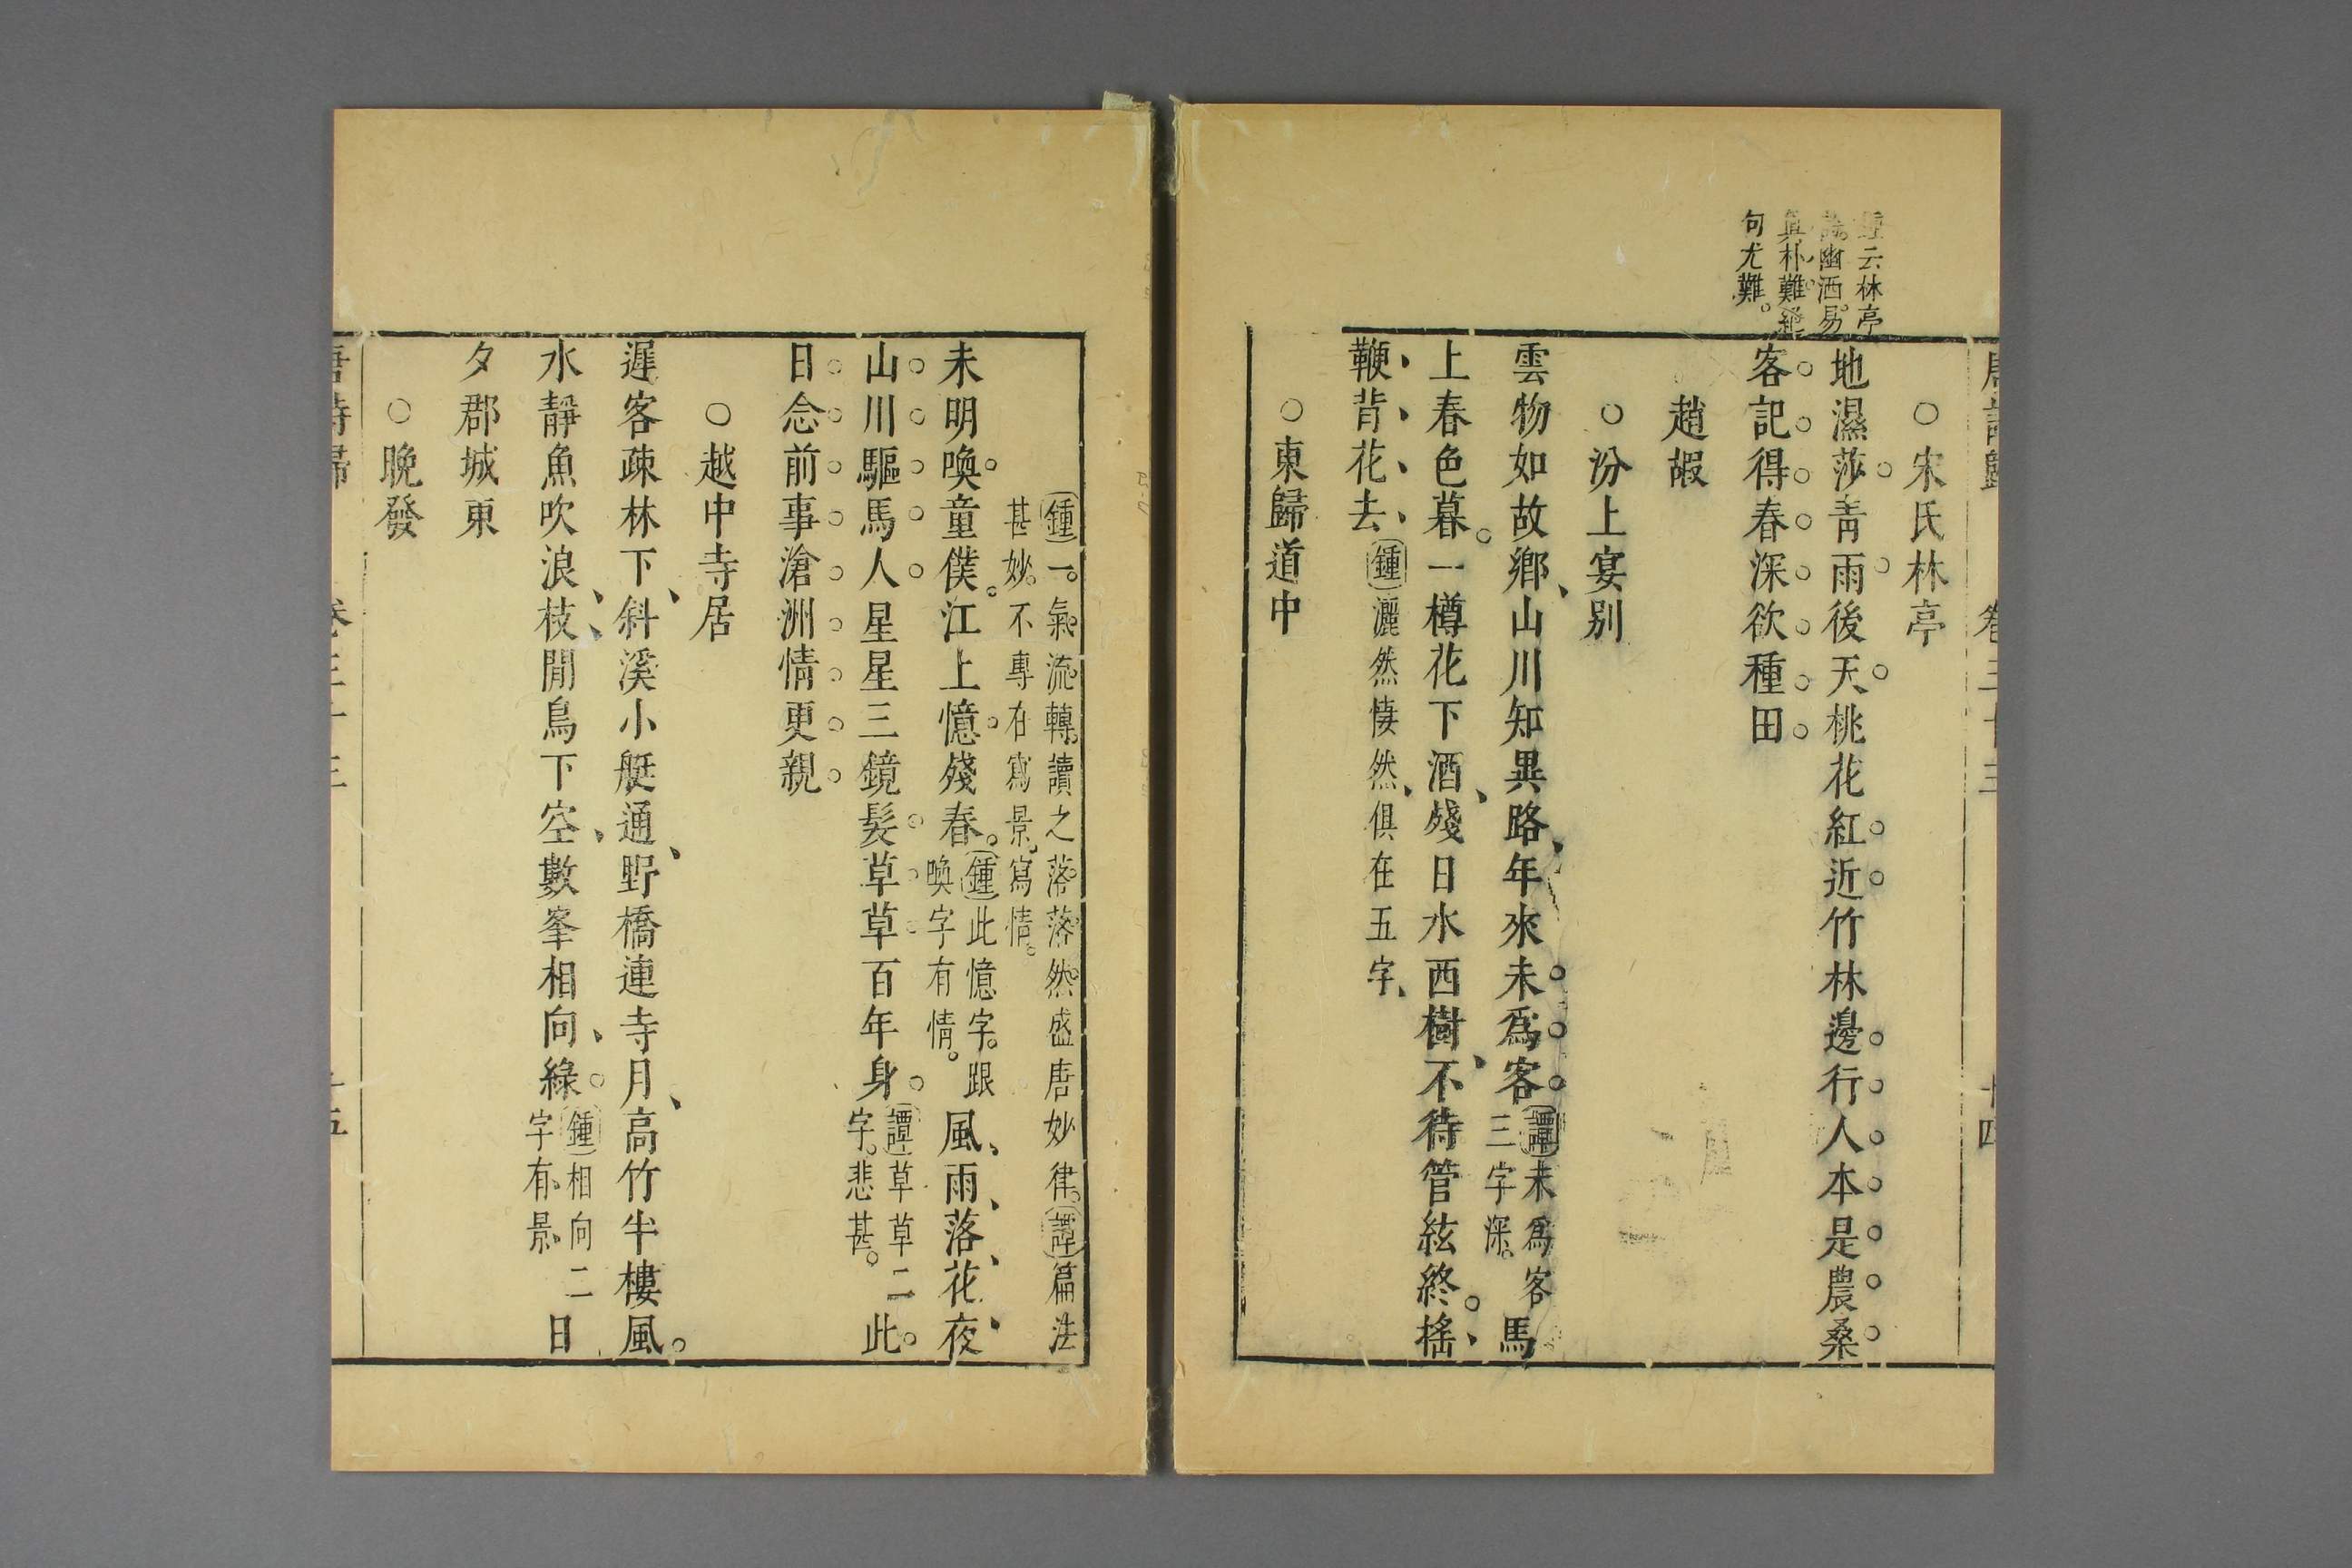 唐詩歸 卷三十三 十四
云林亭
幽洒易
眞朴難
句尤難
○宋氏林亭
地濕莎青雨後天桃花紅近竹林邊行人本是農桑
客記得春深欲種田
趙嘏
○汾上宴别
雲物如故鄉山川知異路年來未爲客譚未爲客三字深馬
上春色暮一樽花下酒殘日水西樹不待管絃終搖
鞭背花去鍾灑然悽然俱在五字
○東歸道中
鍾一氣流轉讀之落落然盛唐妙律譚篇法
甚妙不專在寫景寫情
未明喚童僕江上憶殘春鍾此憶字跟喚字有情風雨落花夜
山川驅馬人星星三鏡髮草草百年身譚草草二字悲甚此
日念前事滄洲情更親
○越中寺居
遲客疎林下斜溪小艇通野橋連寺月高竹半樓風
水靜魚吹浪枝閒鳥下空數峯相向綠鍾相向二字有景日
夕郡城東
○晚發
唐詩歸 卷三十三 十五